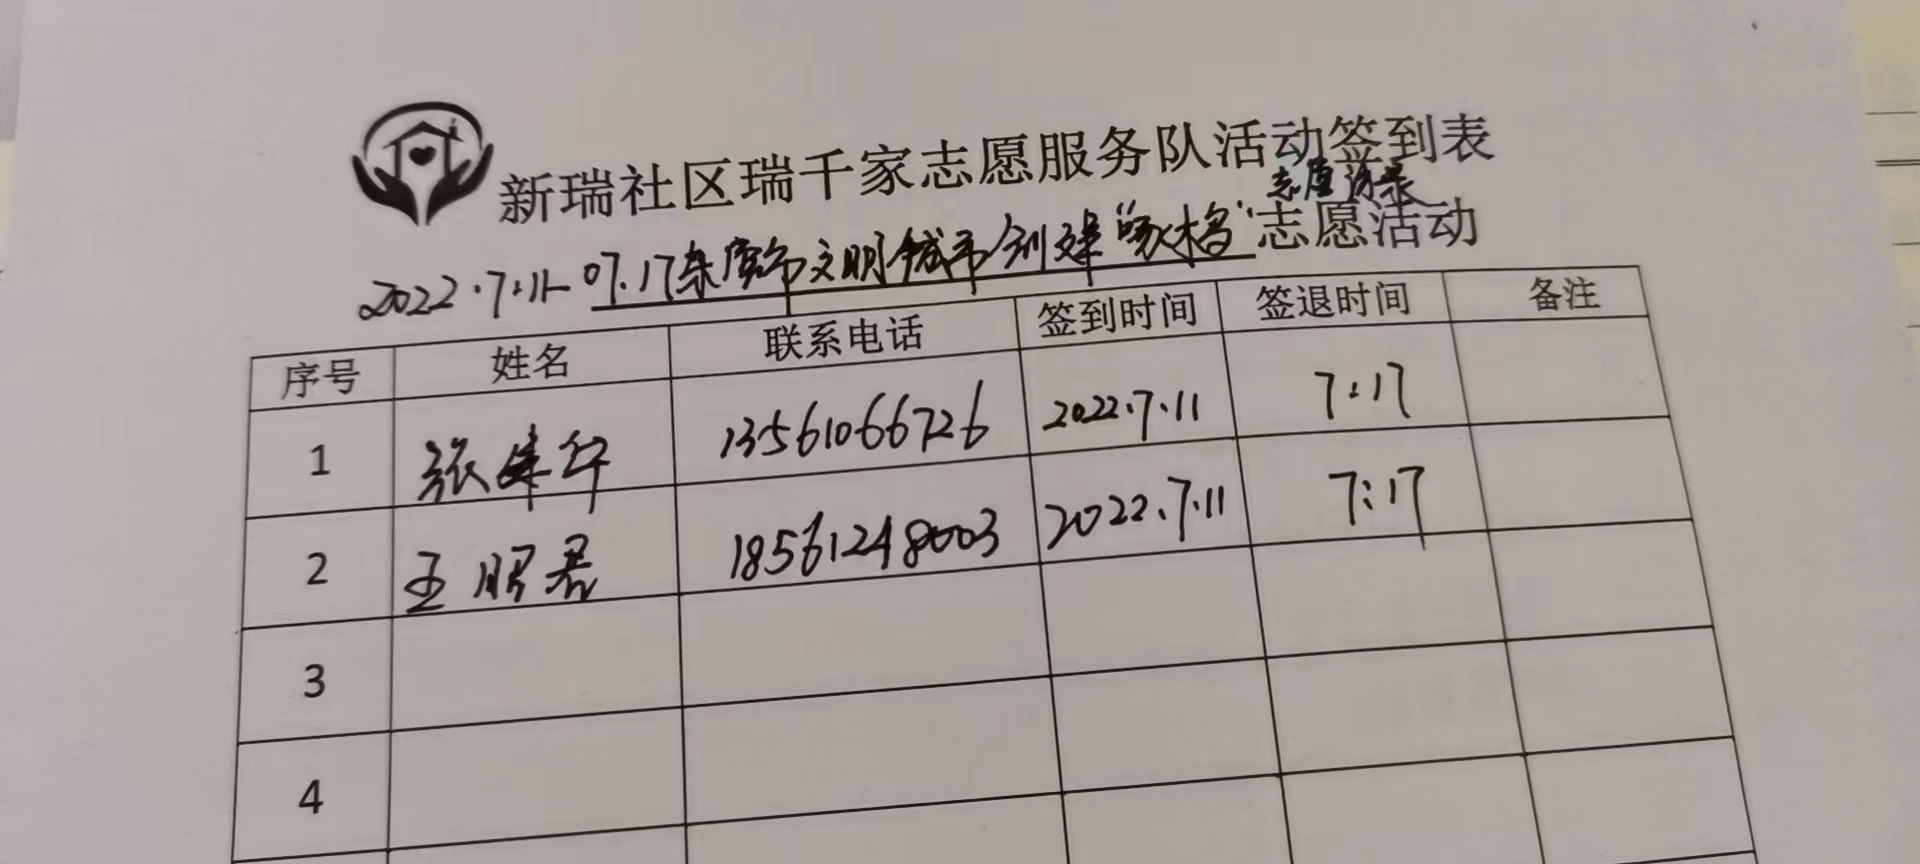 新瑞社区瑞千家志愿服务队活动签到表
志愿
2022.7.11-07.17 文明城市创建“啄木鸟”志愿活动
序号 姓名 联系电话 签到时间 签退时间 备注
1 张建华 13561066726 2022.7.11 7.17
2 王昭君 18561248003 2022.7.11 7.17
3
4